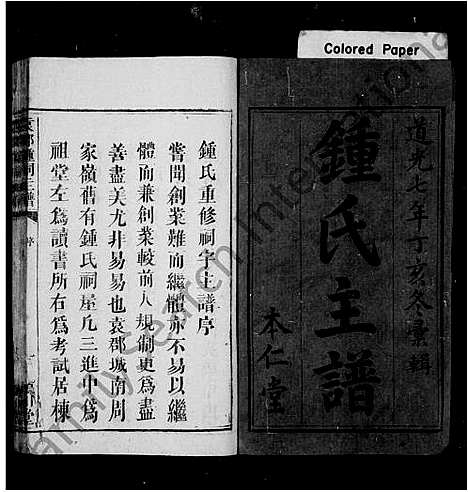 Colored Paper
道光七年丁亥冬彙輯
鍾氏主譜
本仁堂
鍾氏重修祠宇主譜序
嘗聞創業難而繼體亦不易以繼
體而兼創業較前人規制更爲盡
善盡美尤非易易也袁郡城南周
家嶺舊有鍾氏祠屋凡三進中爲
祖堂左爲讀書所右爲考試居棟
序
FamilySearch International